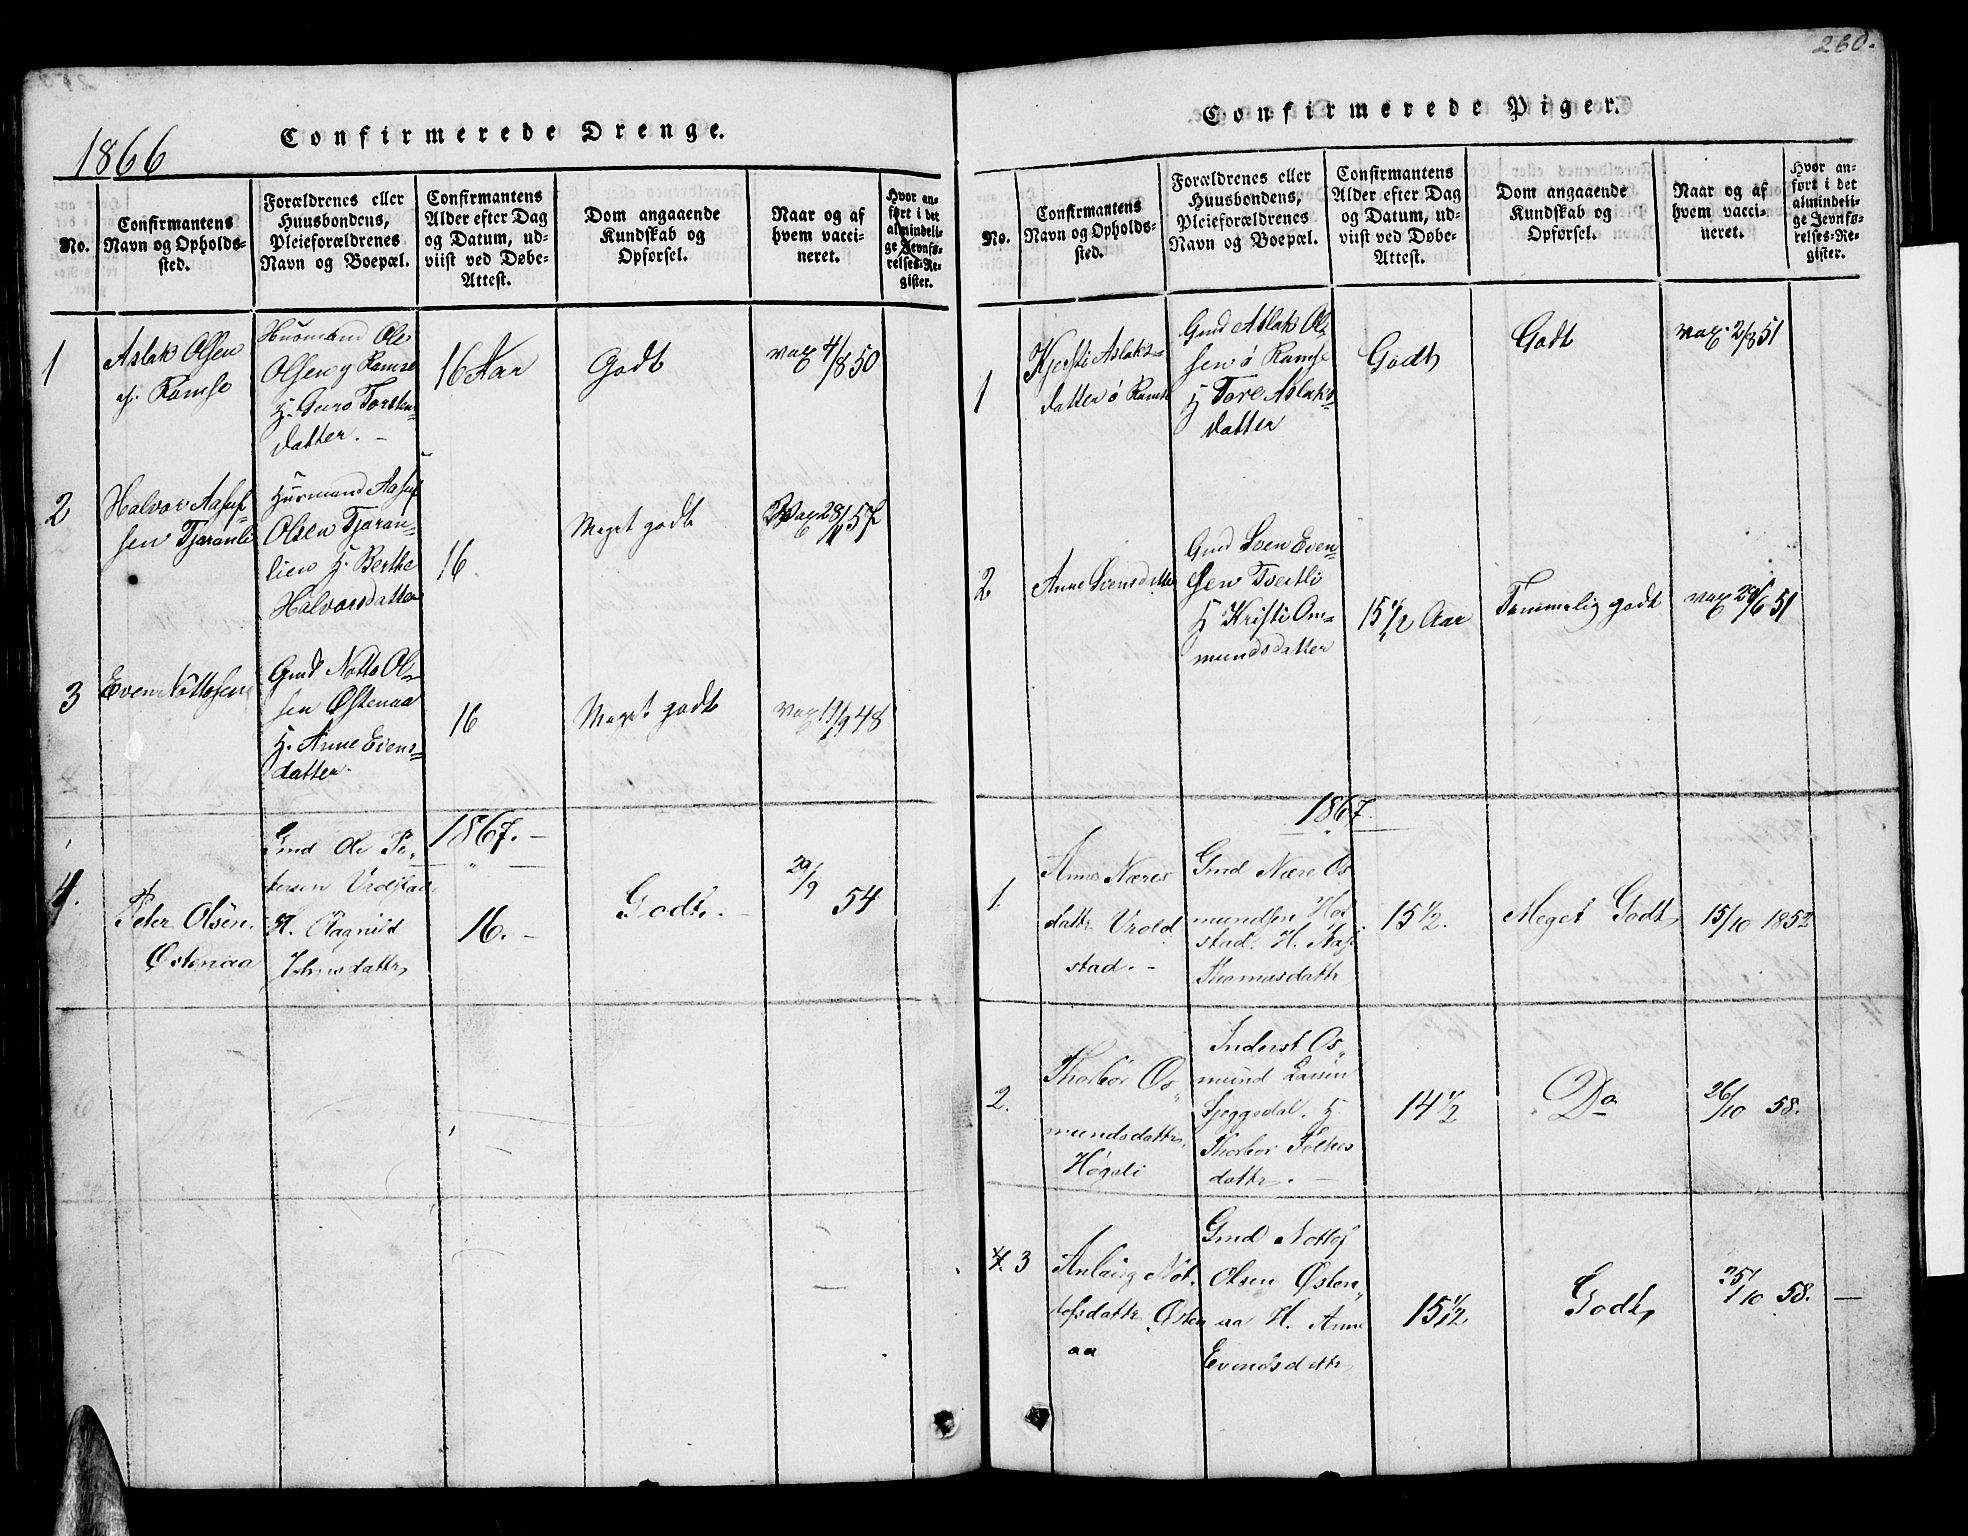 260.
1866
Confirmerede Drenge.
No.
Confirmantens
Navn og Opholds-
sted.
Forældrenes eller
Huusbondens,
Pleieforældrenes
Navn og Boepæl.
Confirmantens
Alder efter Dag
og Datum, ud-
viist ved Døbe-
Attest.
Dom angaaende
Kundskab og
Opførsel.
Naar og af
hvem vacci-
neret.
Hvor an-
ført i det
almindeli-
ge Jevnfø-
relses-Re-
gister.
1
Aslak Olsen
y. Ramse
Husmand Ole
Olsen y Ramse
H. Guro Torstens
datter. -
16 Aar
Godt
vax 4/8 50
2
Halvor Aasuf-
sen Tjaranli
Husmand Aasuf
Olsen Tjaran-
lien H. Berthe
Halvorsdatter
16.
Meget godt
Vax 28/11 57
3
Even Nottosen
Gmd Notto Ol-
sen Østenaa
H. Anne Evens-
datter.
16
Meget godt
vax 19/9 48
1867. -
4.
Peter Olsen
Østenaa
Gmd Ole Pe-
tersen Vrolstad
H. Ragnild
Johnsdattr
16. -
Godt. -
29/9 54
Confirmerede Piger.
No.
Confirmantens
Navn og Opholds-
sted.
Forældrenes eller
Huusbondens,
Pleieforældrenes
Navn og Boepæl.
Confirmantens
Alder efter Dag
og Datum, ud-
viist ved Døbe-
Attest.
Dom angaaende
Kundskab og
Opførsel.
Naar og af
hvem vacci-
neret.
Hvor an-
ført i det
almindeli-
ge Jevnfø-
relses-Re-
gister.
1
Kjersti Aslaks-
datter ø Ramse
Gmd Aslak Ol-
sen ø Ramse
H Tore Aslaks-
datter
Godt
Godt
vax 2/8 51
2
Anne Svensdatter
Gmd Sven Even-
sen Tveitli
H Kristi Om-
mundsdatter
15 1/2 Aar
Temmelig godt
vax 29/6 51
1867.
1.
Anne Næres
dattr Vrold
stad. -
Gmd Nære Os
mundsen
stad. H. Aase
Thomasdattr
15 1/2.
Meget Godt
15/10 1852
2.
Thorbor Os
mundsdattr
Høgeli
Inderst Os-
mund Larsen
H.
Thorbor Folkes
dattr. -
14 1/2
Do
26/10 58.
3
Anlaug Not
tofsdattr Østen
aa
Gmd Nottof
Olsen Østen-
aa H. Anne
Evendsdattr
15 1/2
Godt
25/10 58. -